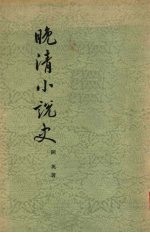 晚清小说史
阿英著